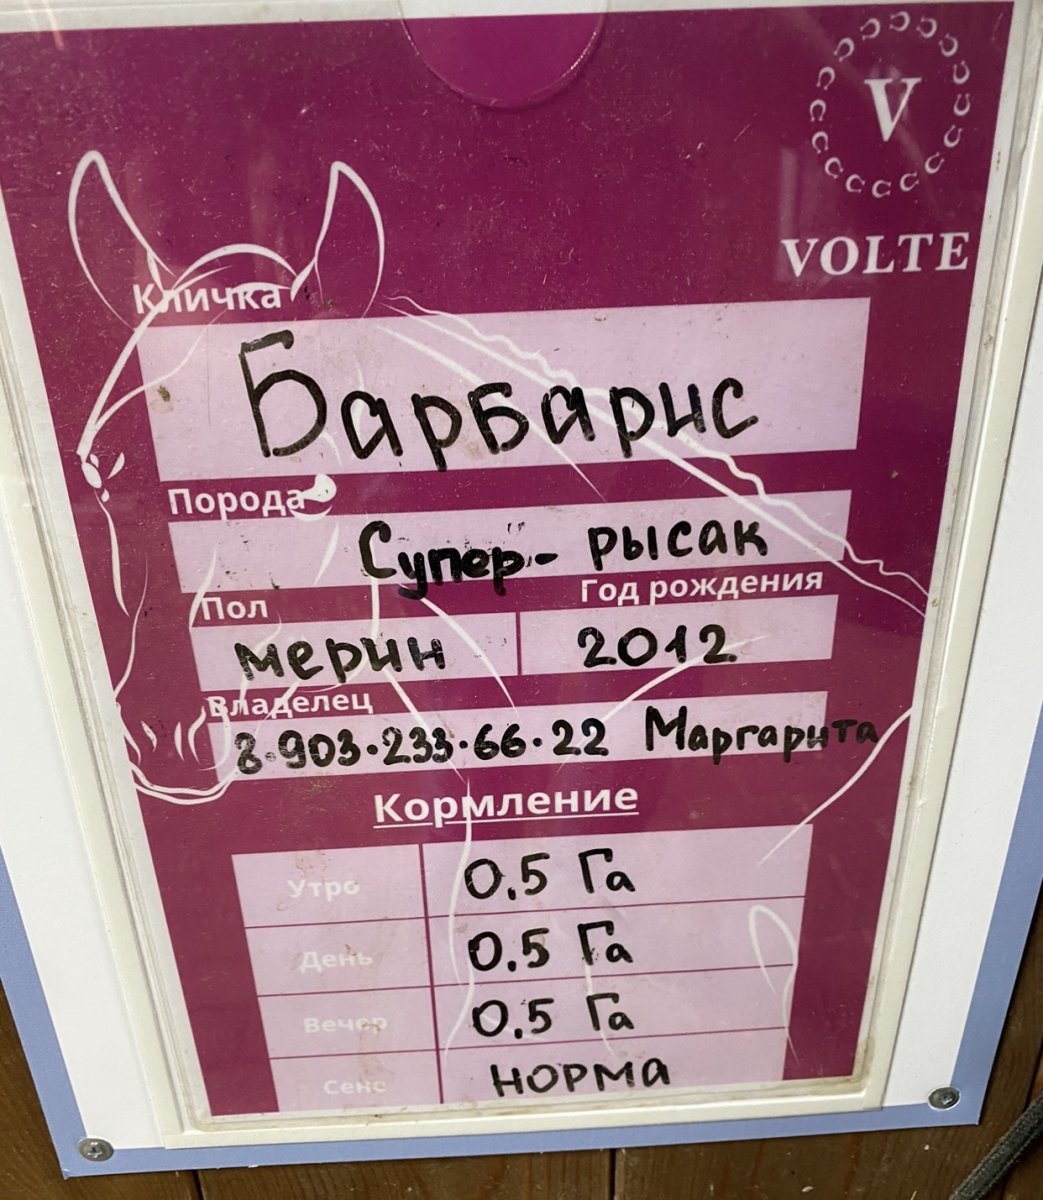 V
VOLTE
Кличка
Барбарис
Порода
Супер- рысак
Пол Год рождения
мерин 2012
Владелец
8-903-233-66-22 Маргарита
Кормление
Утро 0,5 Га
День 0,5 Га
Вечер 0,5 Га
Сено норма